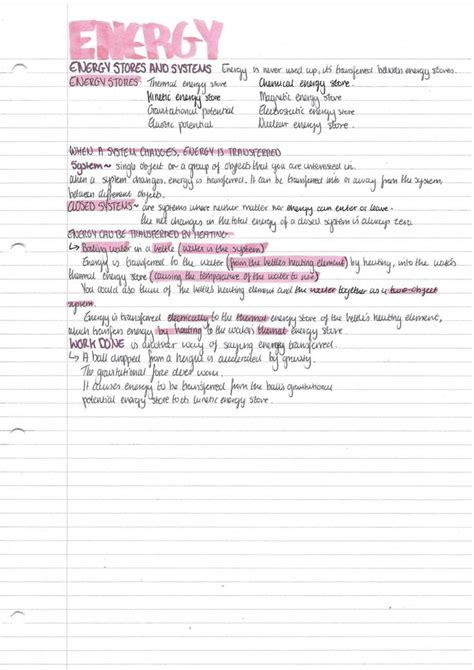 ENERGY
ENERGY STORES AND SYSTEMS Energy is never used up, its transferred between energy stores.
ENERGY STORES: Thermal energy store Chemical energy store.
Kinetic energy store Magnetic energy store
Gravitational potential Electrostatic energy store
Elastic potential Nuclear energy store.
WHEN A SYSTEM CHANGES, ENERGY IS TRANSFERRED
System ~ single object or a group of objects that you are interested in.
When a system changes, energy is transferred. It can be transferred into or away from the system,
between different objects.
CLOSED SYSTEMS ~ are systems where neither matter nor energy can enter or leave.
the net changes in the total energy of a closed system is always zero.
ENERGY CAN BE TRANSFERRED BY HEATING
↳ Boiling water in a kettle (water is the system)
Energy is transferred to the water (from the kettle's heating element) by heating, into the water's
thermal energy store (causing the temperature of the water to rise)
You could also think of the kettle's heating element and the water together as a two object
system.
Energy is transferred electrically to the thermal energy store of the kettle's heating element,
which transfers energy by heating to the water's thermal energy store.
WORK DONE is another way of saying energy transferred.
↳ A ball dropped from a height is accelerated by gravity.
The gravitational force does work.
It causes energy to be transferred from the ball's gravitational
potential energy store to its kinetic energy store.